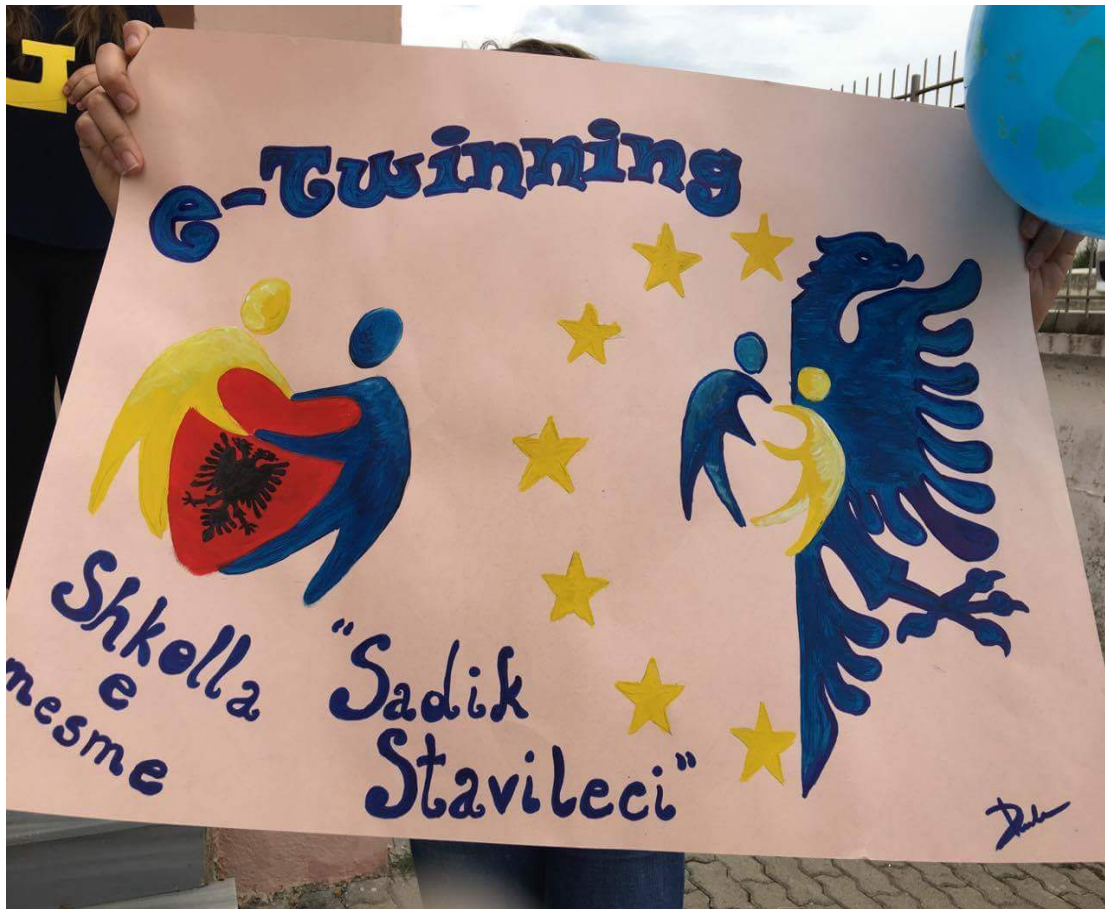 e-Twinning
Shkolla
e
mesme
"Sadik
Stavileci"